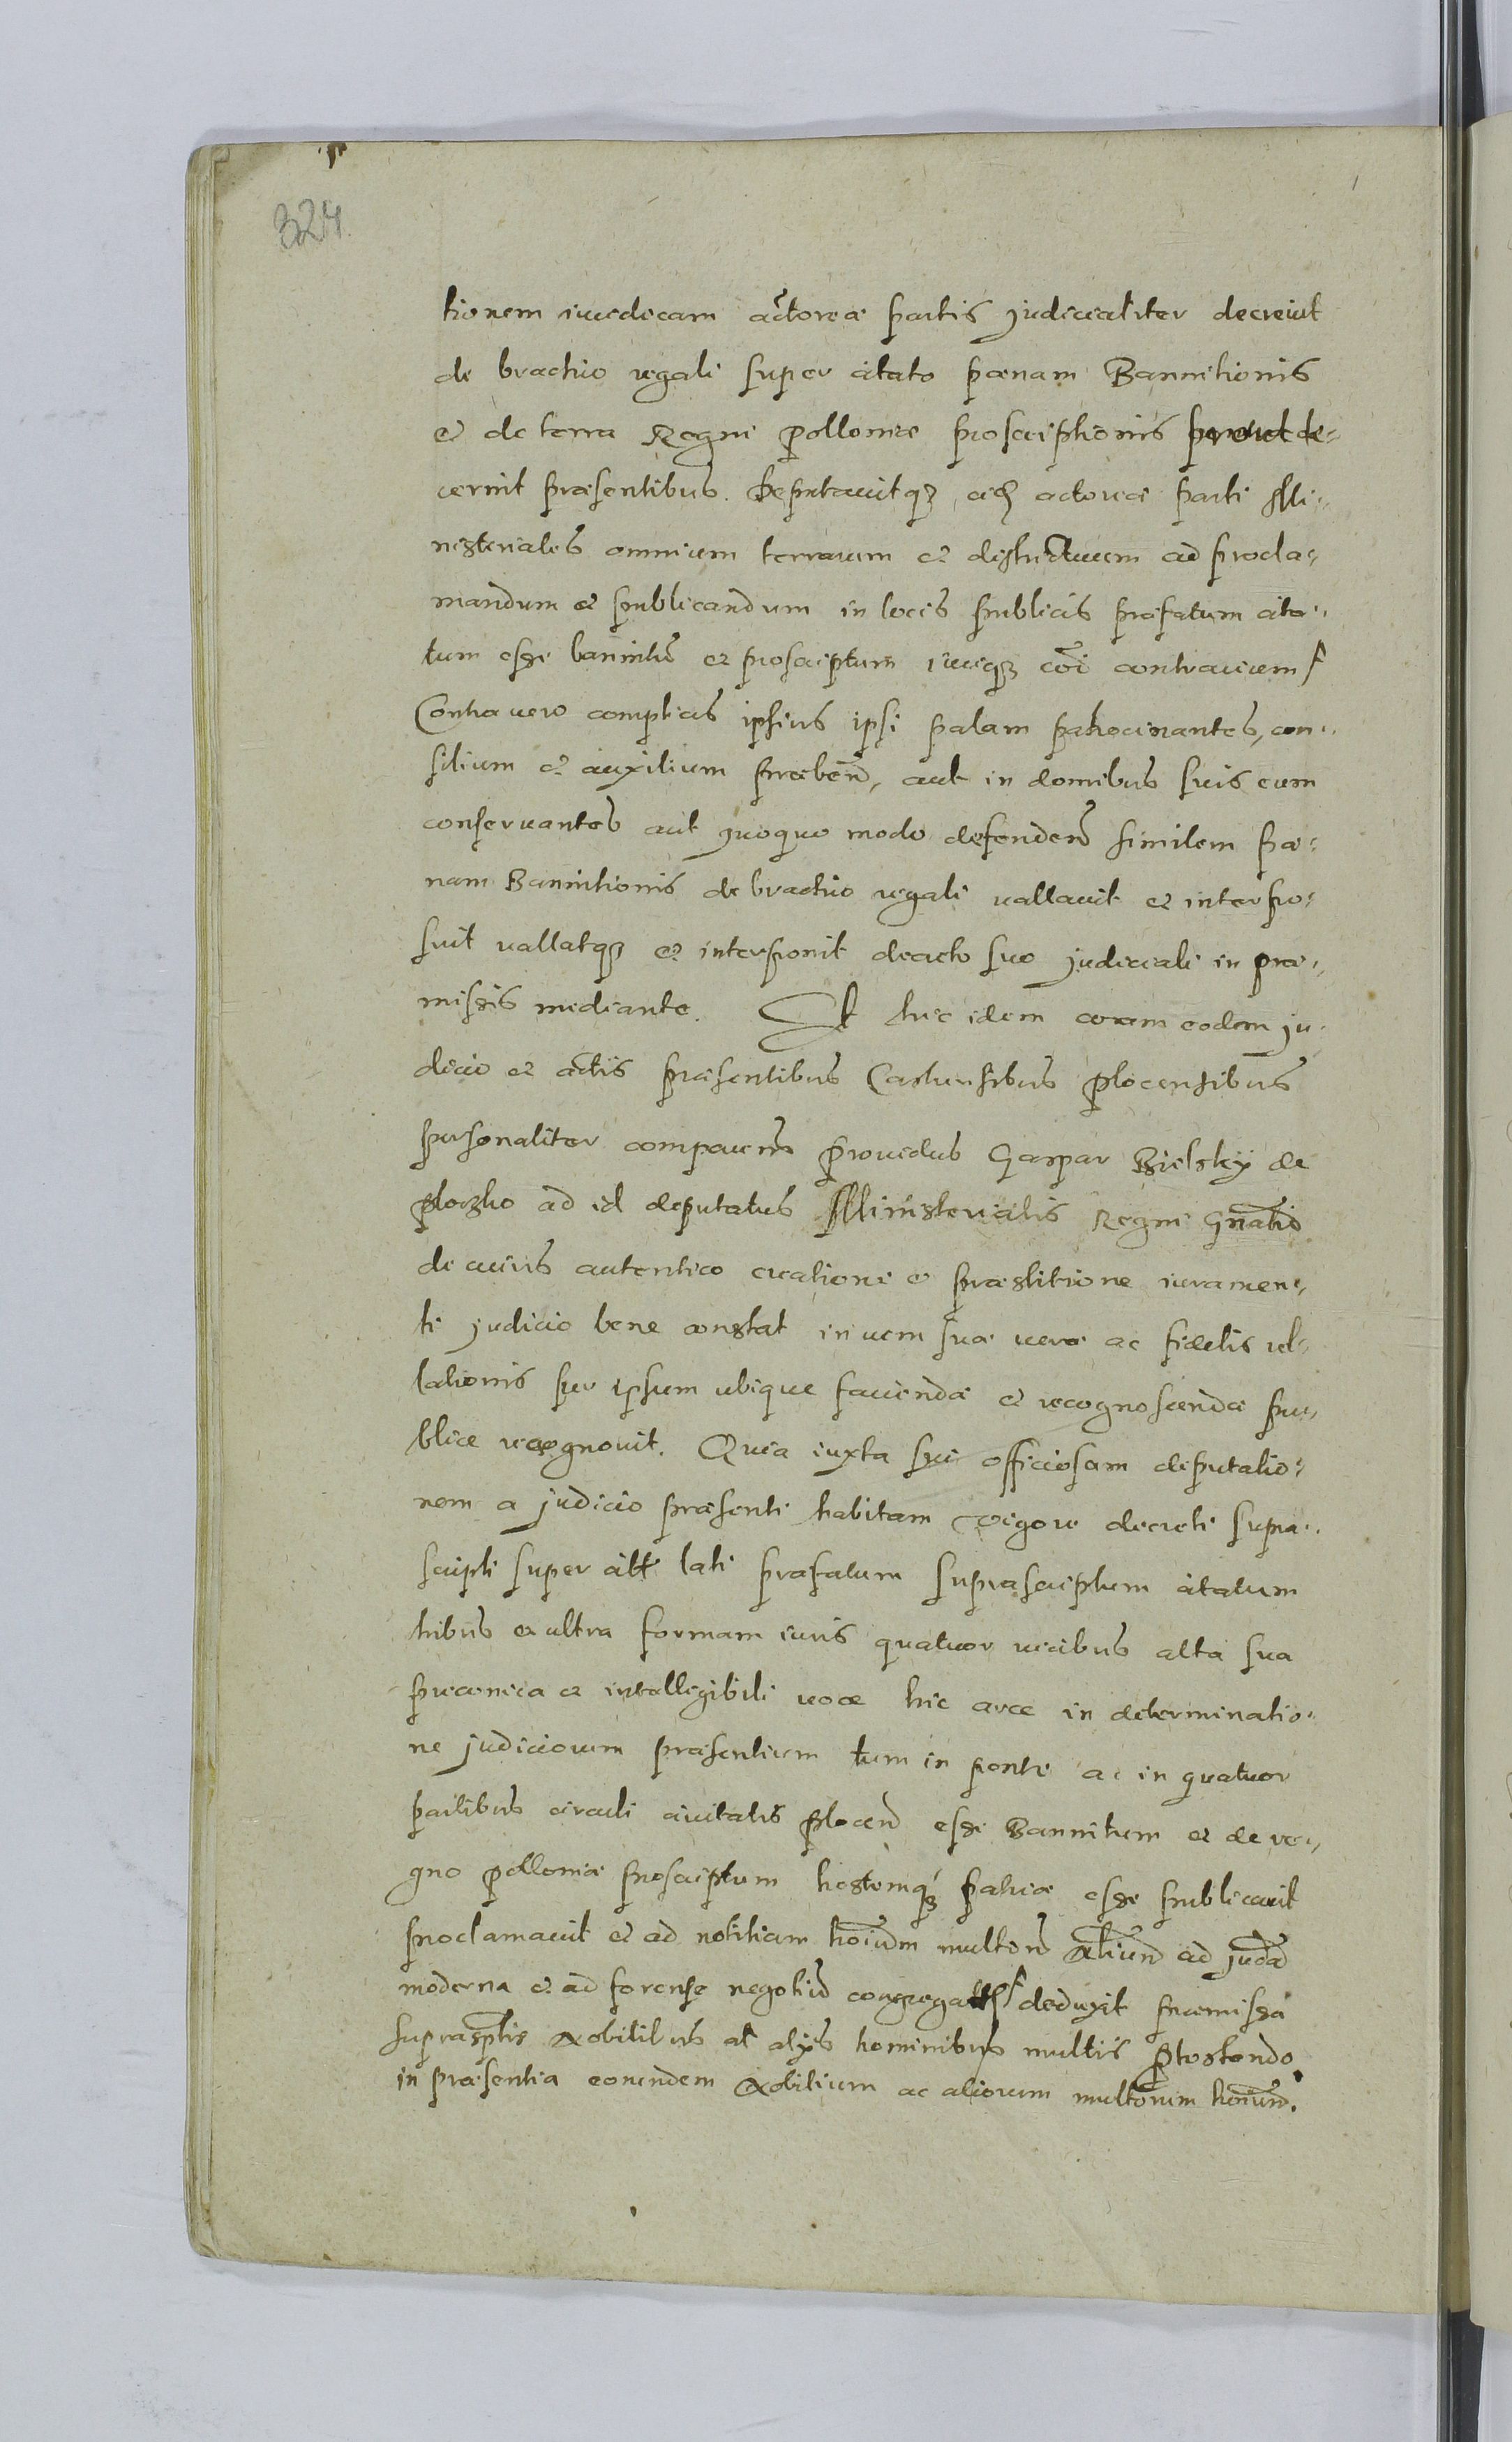 324
tionem iuridicam actoreæ partis judicialiter decreuit
de brachio regali super citato pœnam Bannitionis
et de terra Regni Polloniæ proscriptionis prout de-
cernit præsentibus. Deputauitq3 actoreæ parti Mi-
nisteriales omnium terrarum et districtuum ad procla-
mandum et publicandum in locis publicis præfatum cita-
tum esse bannitũ et proscriptum iuriq3 cõi contrarium
Contra uero complices ipsius ipsi palam patrocinantes, con-
silium et auxilium præben̄, aut in domibus suis eum
conseruantes aut quoquo modo defenden̄ similem pœ-
nam Bannitionis de brachio regali uallauit et interpo-
suit uallatq3 et interponit decreto suo judiciali in præ-
missis mediante. Et hic idem coram eodem ju-
dicio et actis præsentibus Castrensibus Plocensibus
personaliter comparens Prouidus Gaspar Bielsky de
Ploczko ad id deputatus Ministerialis Regni Gñalis
de cuius autentico creatione et præstitione iuramen-
ti judicio bene constat in uim suæ ueræ ac fidelis rel-
lationis per ipsum ubique faciendæ et recognoscendæ pu-
blice recognouit. Quia iuxta sui officiosam deputatio-
nem a judicio præsenti habitam vigore decreti supra-
scripti super citt lati præfatum suprascriptum citatum
tribus et ultra formam iuris quatuor uicibus alta sua
præconica et intelligibili uoce hic arce in determinatio-
ne judiciorum præsentium tum in ponte ac in quatuor
partibus circuli ciuitatis Plocen̄ esse Bannitum et de re-
gno Polloniæ proscriptum hostemq3 patriæ esse publicauit
proclamauit et ad notitiam hoĩum multorũ ad judã
moderna et ad forense negotiũ deduxit præmissa
suprasptis Nobilibus et alys hominibus multis Ptestando
in præsentia eorundem Nobilium ac aliorum multorum hoĩum.